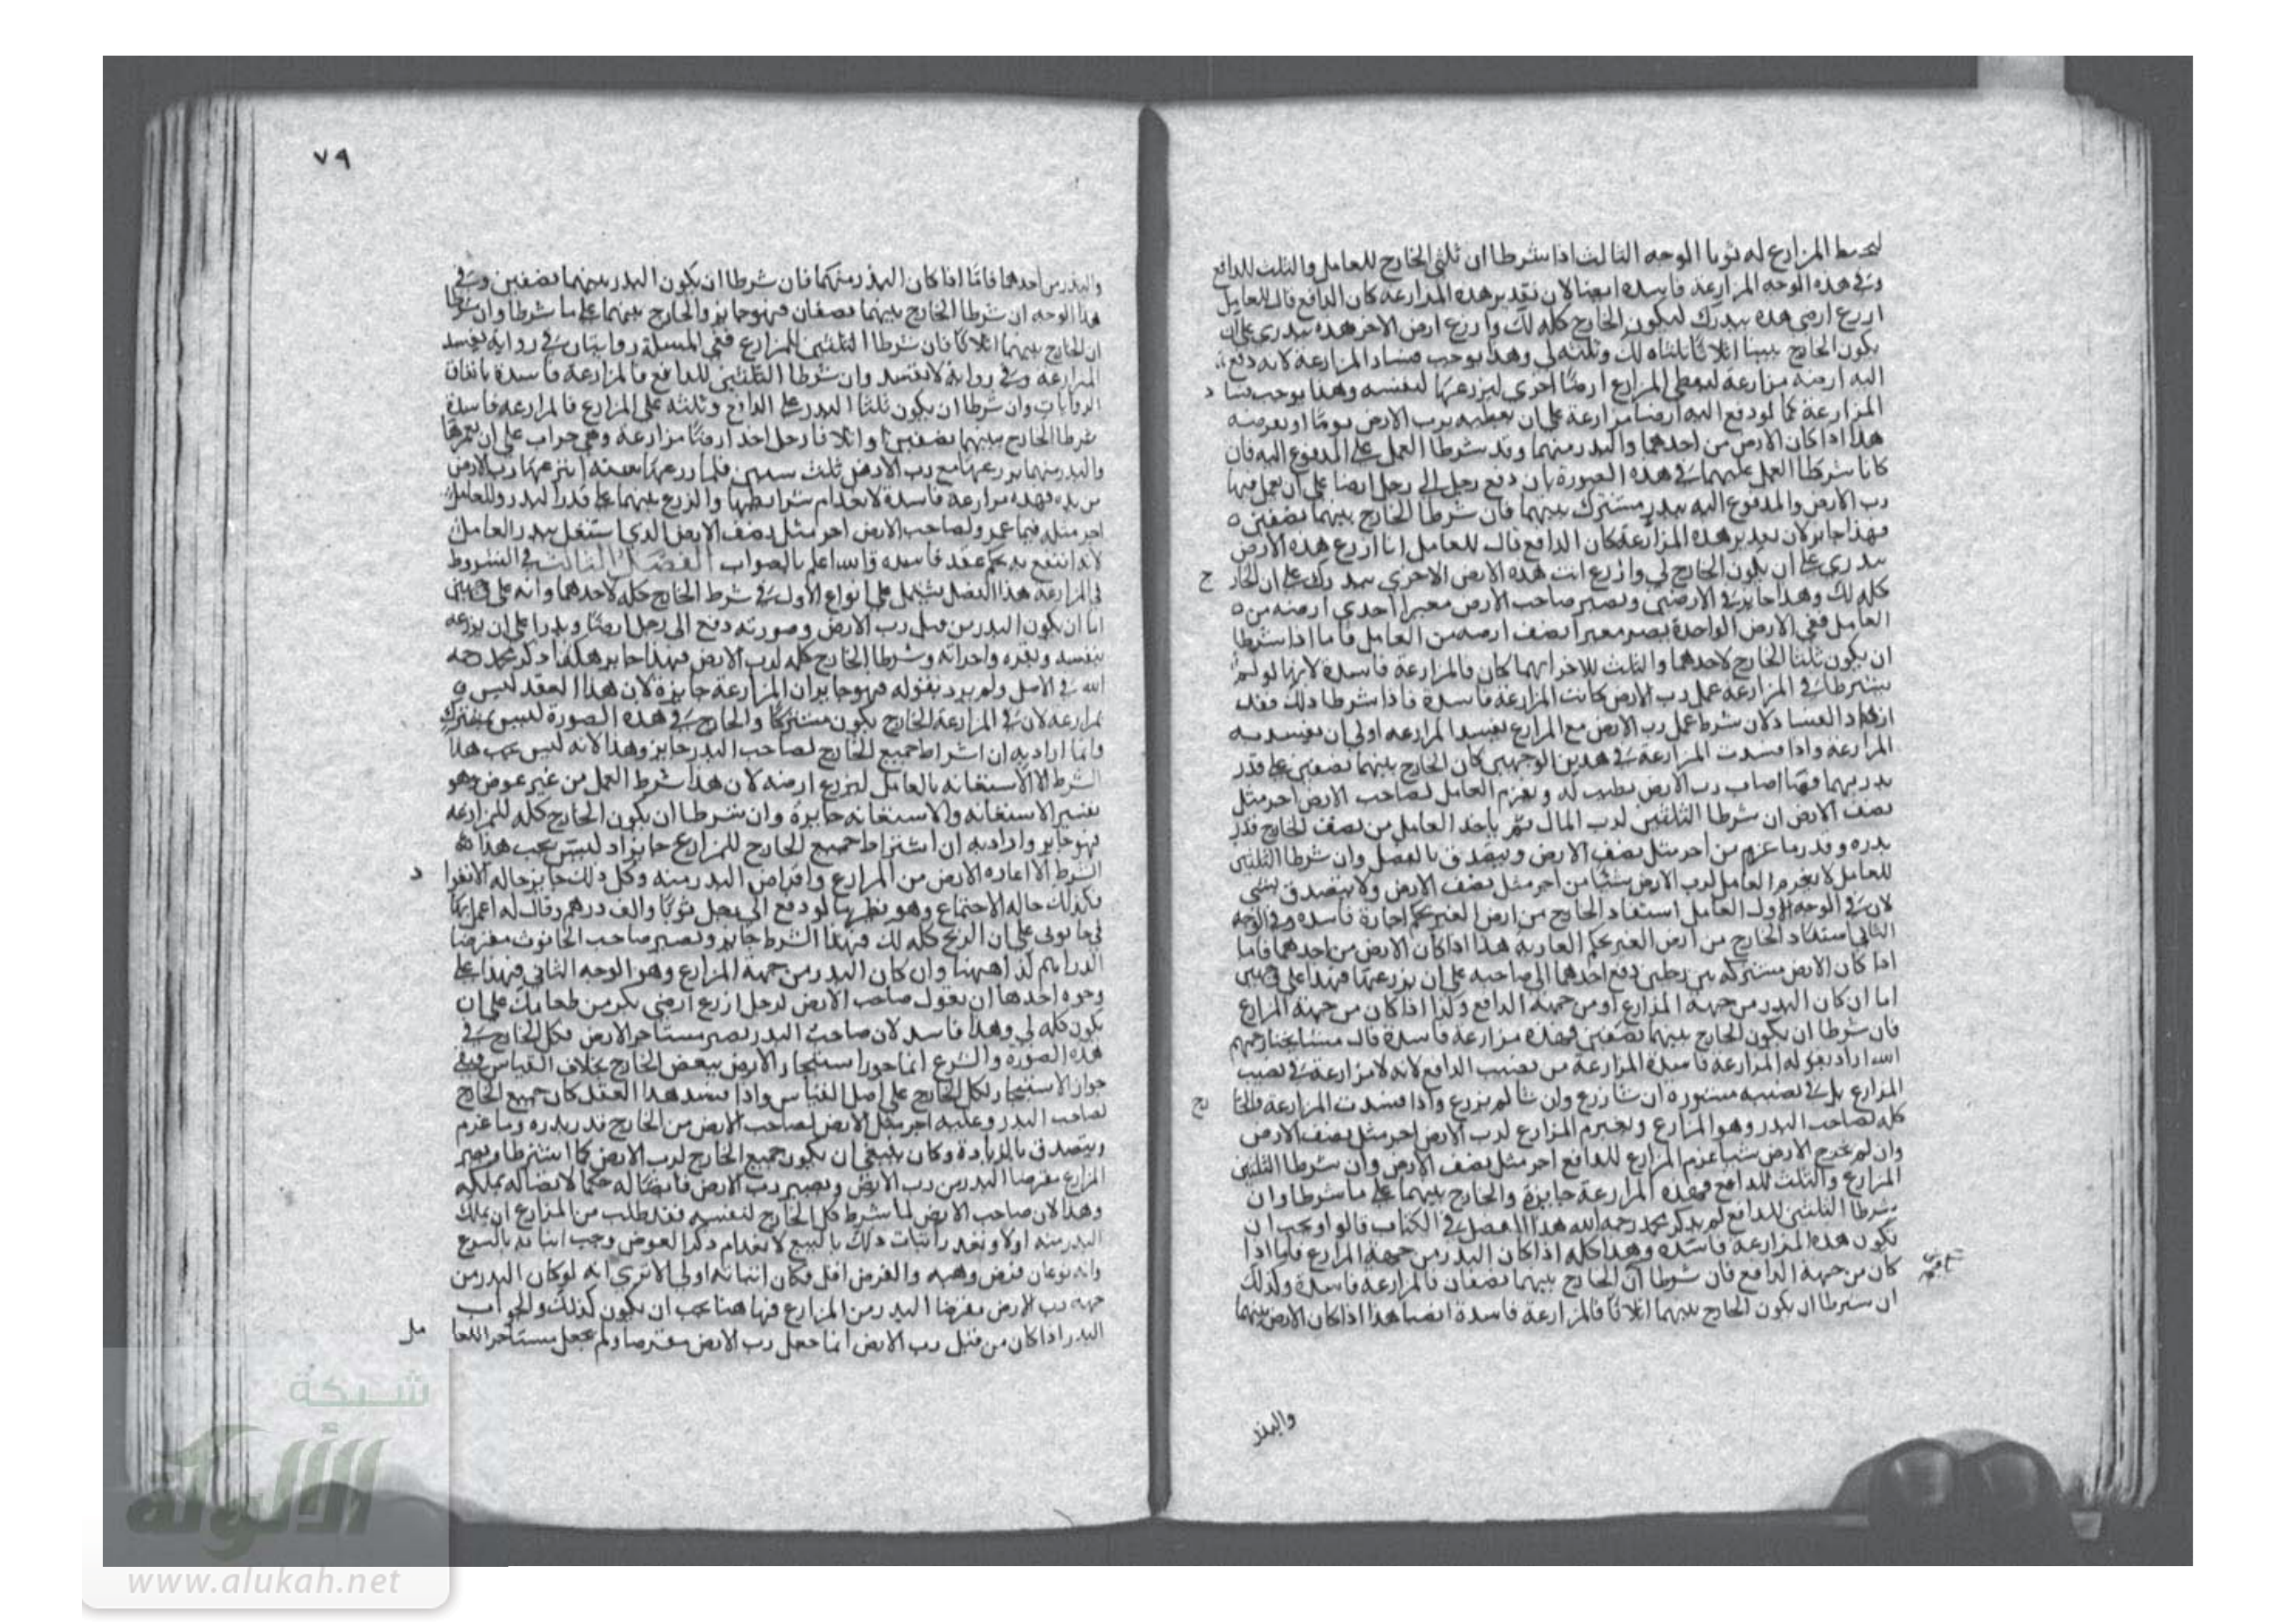 ليخيط المزارع له ثوبا الوجه الثالث اذا شرطا ان ثلثي الخارج للعامل والثلث للدافع
وفي هذه الوجه المزارعة فاسدة ايضا لان تقدير هذه المزارعة كان الدافع قال للعامل
ازرع ارضي هذه ببذرك ليكون الخارج كله لك وازرع ارض الاخر هذه ببذري على ان
يكون الخارج بيننا اثلاثا ثلثاه لك وثلثه لي وهذا يوجب فساد المزارعة لانه دفع
اليه ارضه مزارعة ليعطي المزارع ارضا اخرى ليزرعها لنفسه وهذا يوجب فسا د
المزارعة كما لو دفع اليه ارضا مزارعة على ان يعطيه رب الارض يوما او يعرضه
هذا اذا كان الارض من احدهما والبذر منهما وقد شرطا العمل على المدفوع اليه فان
كانا شرطا العمل عليهما في هذه الصورة بان دفع رجل الى رجل ارضا على ان يعمل فيها
رب الارض والمدفوع اليه ببذر مشترك بينهما فان شرطا الخارج بينهما نصفين
فهذا جايز لان تقدير هذه المزارعة كان الدافع قال للعامل انا ازرع هذه الارض
ببذري على ان يكون الخارج لي وازرع انت هذه الارض الاخرى ببذرك على ان الخار ج
كله لك وهذا جايز في الارضين ويصير صاحب الارض معيرا احدى ارضه من
العامل ففي الارض الواحدة يصير معيرا نصف ارضه من العامل فاما اذا شرطا
ان يكون ثلثا الخارج لاحدهما والثلث للاخر ايهما كان فالمزارعة فاسدة لانها لو لم
يشترطا في المزارعة عمل رب الارض كانت المزارعة فاسدة فاذا شرطا ذلك فقد
ازداد الفساد لان شرط عمل رب الارض مع المزارع يفسد المزارعة اولى ان يفسد به
المزارعة واذا فسدت المزارعة في هذين الوجهين كان الخارج بينهما نصفين على قدر
بذريهما فما اصاب رب الارض يطيب له ويغرم العامل لصاحب الارض اجر مثل
نصف الارض ان شرطا الثلثين لرب المال ثم ياخذ العامل من نصف الخارج قدر
بذره وقدر ما غرم من اجر مثل نصف الارض ويتصدق بالفضل وان شرطا الثلثين
للعامل لا يغرم العامل لرب الارض شيئا من اجر مثل نصف الارض ولا يتصدق بشي
لان في الوجه الاول العامل استفاد الخارج من ارض الغير بحكم اجارة فاسدة وفي الوجه
الثاني استفاد الخارج من ارض الغير بحكم العارية هذا اذا كان الارض من احدهما فاما
اذا كان الارض مشتركة بين رجلين دفع احدهما الى صاحبه على ان يزرعها فهذا على وجهين
اما ان كان البذر من جهة المزارع او من جهة الدافع وكذا اذا كان من جهة المزارع
فان شرطا ان يكون الخارج بينهما نصفين فهذه مزارعة فاسدة قال مشايخنا رحمهم
الله اراد بقوله المزارعة فاسدة المزارعة من نصيب الدافع لانه لا مزارعة في نصيب
المزارع بل في نصيبه مشورة ان شا زرع وان شا لم يزرع واذا فسدت المزارعة فالخا رج
كله لصاحب البذر وهو المزارع ويغرم المزارع لرب الارض اجر مثل نصف الارض
وان لم يخرج الارض شيا غرم المزارع للدافع اجر مثل نصف الارض وان شرطا الثلثين
المزارع والثلث للدافع فهذه المزارعة جايزة والخارج بينهما على ما شرطا وان
شرطا الثلثين للدافع لم يذكر محمد رحمه الله هذا الفصل في الكتاب قالوا ويجب ان
تكون هذه المزارعة فاسدة وهذا كله اذا كان البذر من جهة المزارع فاما اذا
كان من جهة الدافع فان شرطا ان الخارج بينهما نصفان فالمزارعة فاسدة وكذلك
ان شرطا ان يكون الخارج بينهما اثلاثا فالمزارعة فاسدة ايضا هذا اذا كان الارض بينهما
والبذر
٧٩
والبذر من احدهما فاما اذا كان البذر منهما فان شرطا ان يكون البذر بينهما نصفين وفي
هذا الوجه ان شرطا الخارج بينهما نصفان فهو جايز والخارج بينهما على ما شرطا وان شرطا
ان الخارج بينهما اثلاثا فان شرطا الثلثين للمزارع ففي المسئلة روايتان في رواية تفسد
المزارعة وفي رواية لا تفسد وان شرطا الثلثين للدافع فالمزارعة فاسدة باتفاق
الروايات وان شرطا ان يكون ثلثا البذر على الدافع وثلثه على المزارع فالمزارعة فاسدة
شرطا الخارج بينهما نصفين او اثلاثا رجل اخذ ارضا مزارعة وهي خراب على ان يعمرها
والبذر منهما يزرعها مع رب الارض ثلث سنين فلما زرعها سنة انتزعها رب الارض
من يده فهذه مزارعة فاسدة لانعدام شرايطها والزرع بينهما على قدر البذر وللعامل
اجر مثله فيما عمر ولصاحب الارض اجر مثل نصف الارض الذي استغل ببذر العامل
لانه انتفع به بحكم عقد فاسد والله اعلم بالصواب الفصل الثالث في الشروط
في المزارعة هذا الفصل يشتمل على انواع الاول في شرط الخارج كله لاحدهما وانه على وجهين
اما ان يكون البذر من قبل رب الارض وصورته دفع الى رجل ارضا وبذرا على ان يزرعه
بنفسه وبقره واجرائه وشرطا الخارج كله لرب الارض فهذا جايز هكذا ذكر محمد رحمه
الله في الاصل ولم يرد بقوله فهو جايز ان المزارعة جايزة لان هذا العقد ليس
بمزارعة لان في المزارعة الخارج يكون مشتركا والخارج في هذه الصورة ليس بمشترك
وانما اراد به ان اشتراط جميع الخارج لصاحب البذر جايز وهذا لانه ليس يجب هذا
الشرط الا الاستعانة بالعامل ليزرع ارضه لان هذا شرط العمل من غير عوض وهو
تفسير الاستعانة والاستعانة جايزة وان شرطا ان يكون الخارج كله للمزارعه
فهو جايز واراد به ان اشتراط جميع الخارج للمزارع جايز اد ليس يجب هذا
الشرط الا اعارة الارض من المزارع واقراض البذر منه وكل ذلك جايز حالة الانفرا د
فكذلك حالة الاجتماع وهو نظير ما لو دفع الى رجل ثوبا والف درهم وقال له اعمل بها
في حانوتي على ان الربح كله لك فهذا الشرط جايز ويصير صاحب الحانوت مقرضا
الدراهم كذا ههنا وان كان البذر من جهة المزارع وهو الوجه الثاني فهذا على
وجوه احدها ان يقول صاحب الارض لرجل ازرع ارضي بكر من طعامك على ان
يكون كله لي وهذا فاسد لان صاحب البذر يصير مستاجر الارض بكل الخارج في
هذه الصورة والشرع انما جوز استيجار الارض ببعض الخارج بخلاف القياس فبقي
جواز الاستيجار بكل الخارج على اصل القياس واذا فسد هذا العقد كان جميع الخارج
لصاحب البذر وعليه اجر مثل الارض لصاحب الارض من الخارج قدر بذره وما غرم
ويتصدق بالزيادة وكان ينبغي ان يكون جميع الخارج لرب الارض كما اشترطا ويصير
المزارع مقرضا البذر من رب الارض ويصير رب الارض قابضا له حكما لاتصاله بملكه
وهذا لان صاحب الارض لما شرط كل الخارج لنفسه فقد طلب من المزارع ان يملك
البذر منه اولا وتعذر اثبات ذلك بالبيع لانعدام ذكر العوض وجب اثباته بالتبرع
وانه نوعان قرض وهبه والقرض اقل فكان اثباته اولى الا ترى انه لو كان البذر من
جهة رب الارض مقرضا البذر من المزارع فها هنا يجب ان يكون كذلك والجواب
البذر اذا كان من قبل رب الارض انما جعل رب الارض مقرضا ولم يجعل مستاجرا للعا مل
شبكة
الألوكة
www.alukah.net